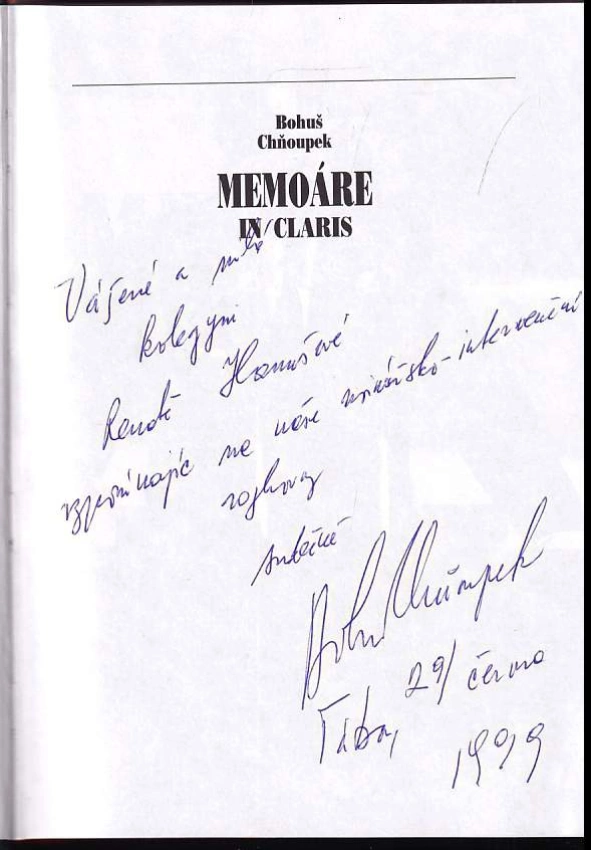 Bohuš
Chňoupek
MEMOÁRE
IN CLARIS
Vážené a milé
kolegyni
Renatě Hanušové
vzpomínajíc na naše novinářsko-intervenční
rozhovory
srdečně
Bohuš Chňoupek
Tábor, 29/ června
1999